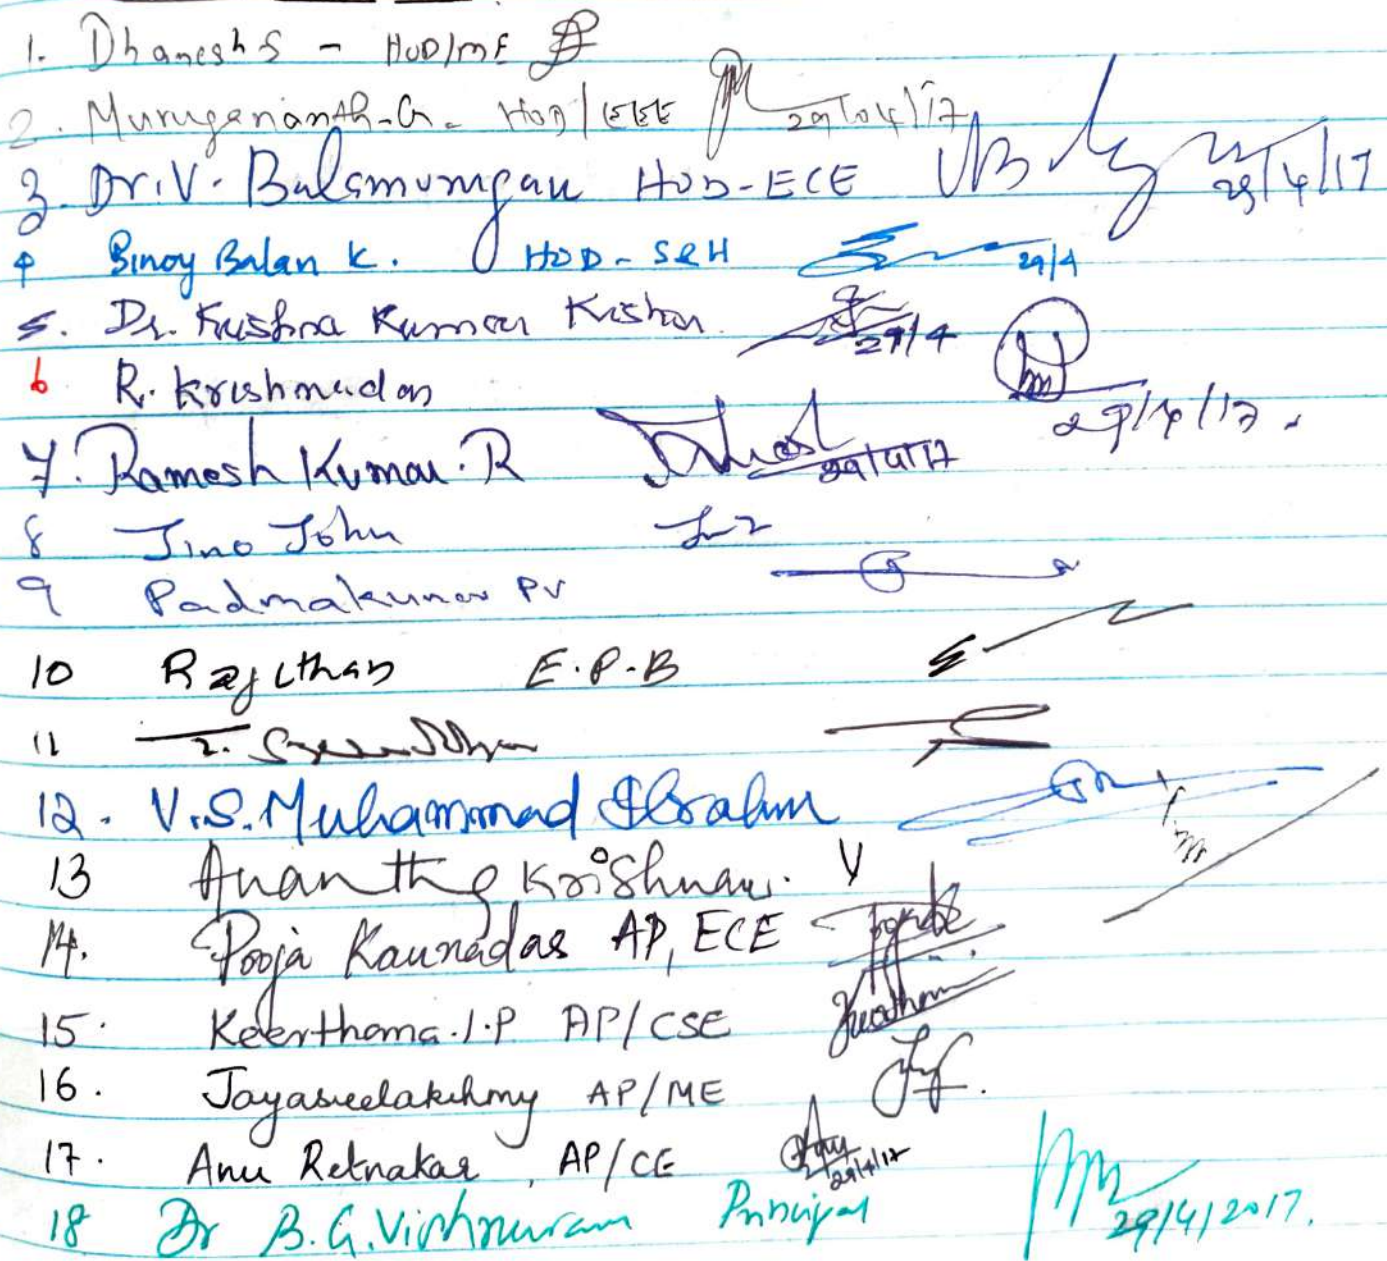 1. Dhanesh S - HOD/ME
2. Murugananth.G. HOD/EEE 29/04/17
3. Dr.V. Balamurugan HOD-ECE 29/4/17
4 Binoy Balan K. HOD-S&H 29/4
5. Dr. Krishna Kumar Kishor 29/4
6 R. Krishnadas 29/4/17.
7. Ramesh Kumar.R 29/4/17
8 Jino John
9 Padmakumar PV
10 Rajithan E.P.B
11
12. V.S.Muhammad Ibrahim
13 Anantha Krishnan. V
14. Pooja Kaunadas AP, ECE
15. Keerthama.J.P AP/CSE
16. Jayasreelakshmy AP/ME
17. Anu Retnakar, AP/CE 29/4/17
18 Dr B.G.Vishnuram Principal 29/4/2017.